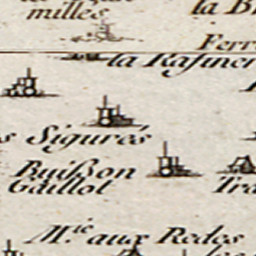 milles
la B
Ferr
la Rasiner
Sigurés
Buisson
Gaillot
Tra
M.ie aux Redes